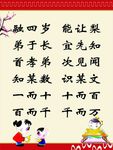 融四岁 能让梨
弟于长 宜先知
首孝弟 次见闻
知某数 识某文
一而十 十而百
百而千 千而万